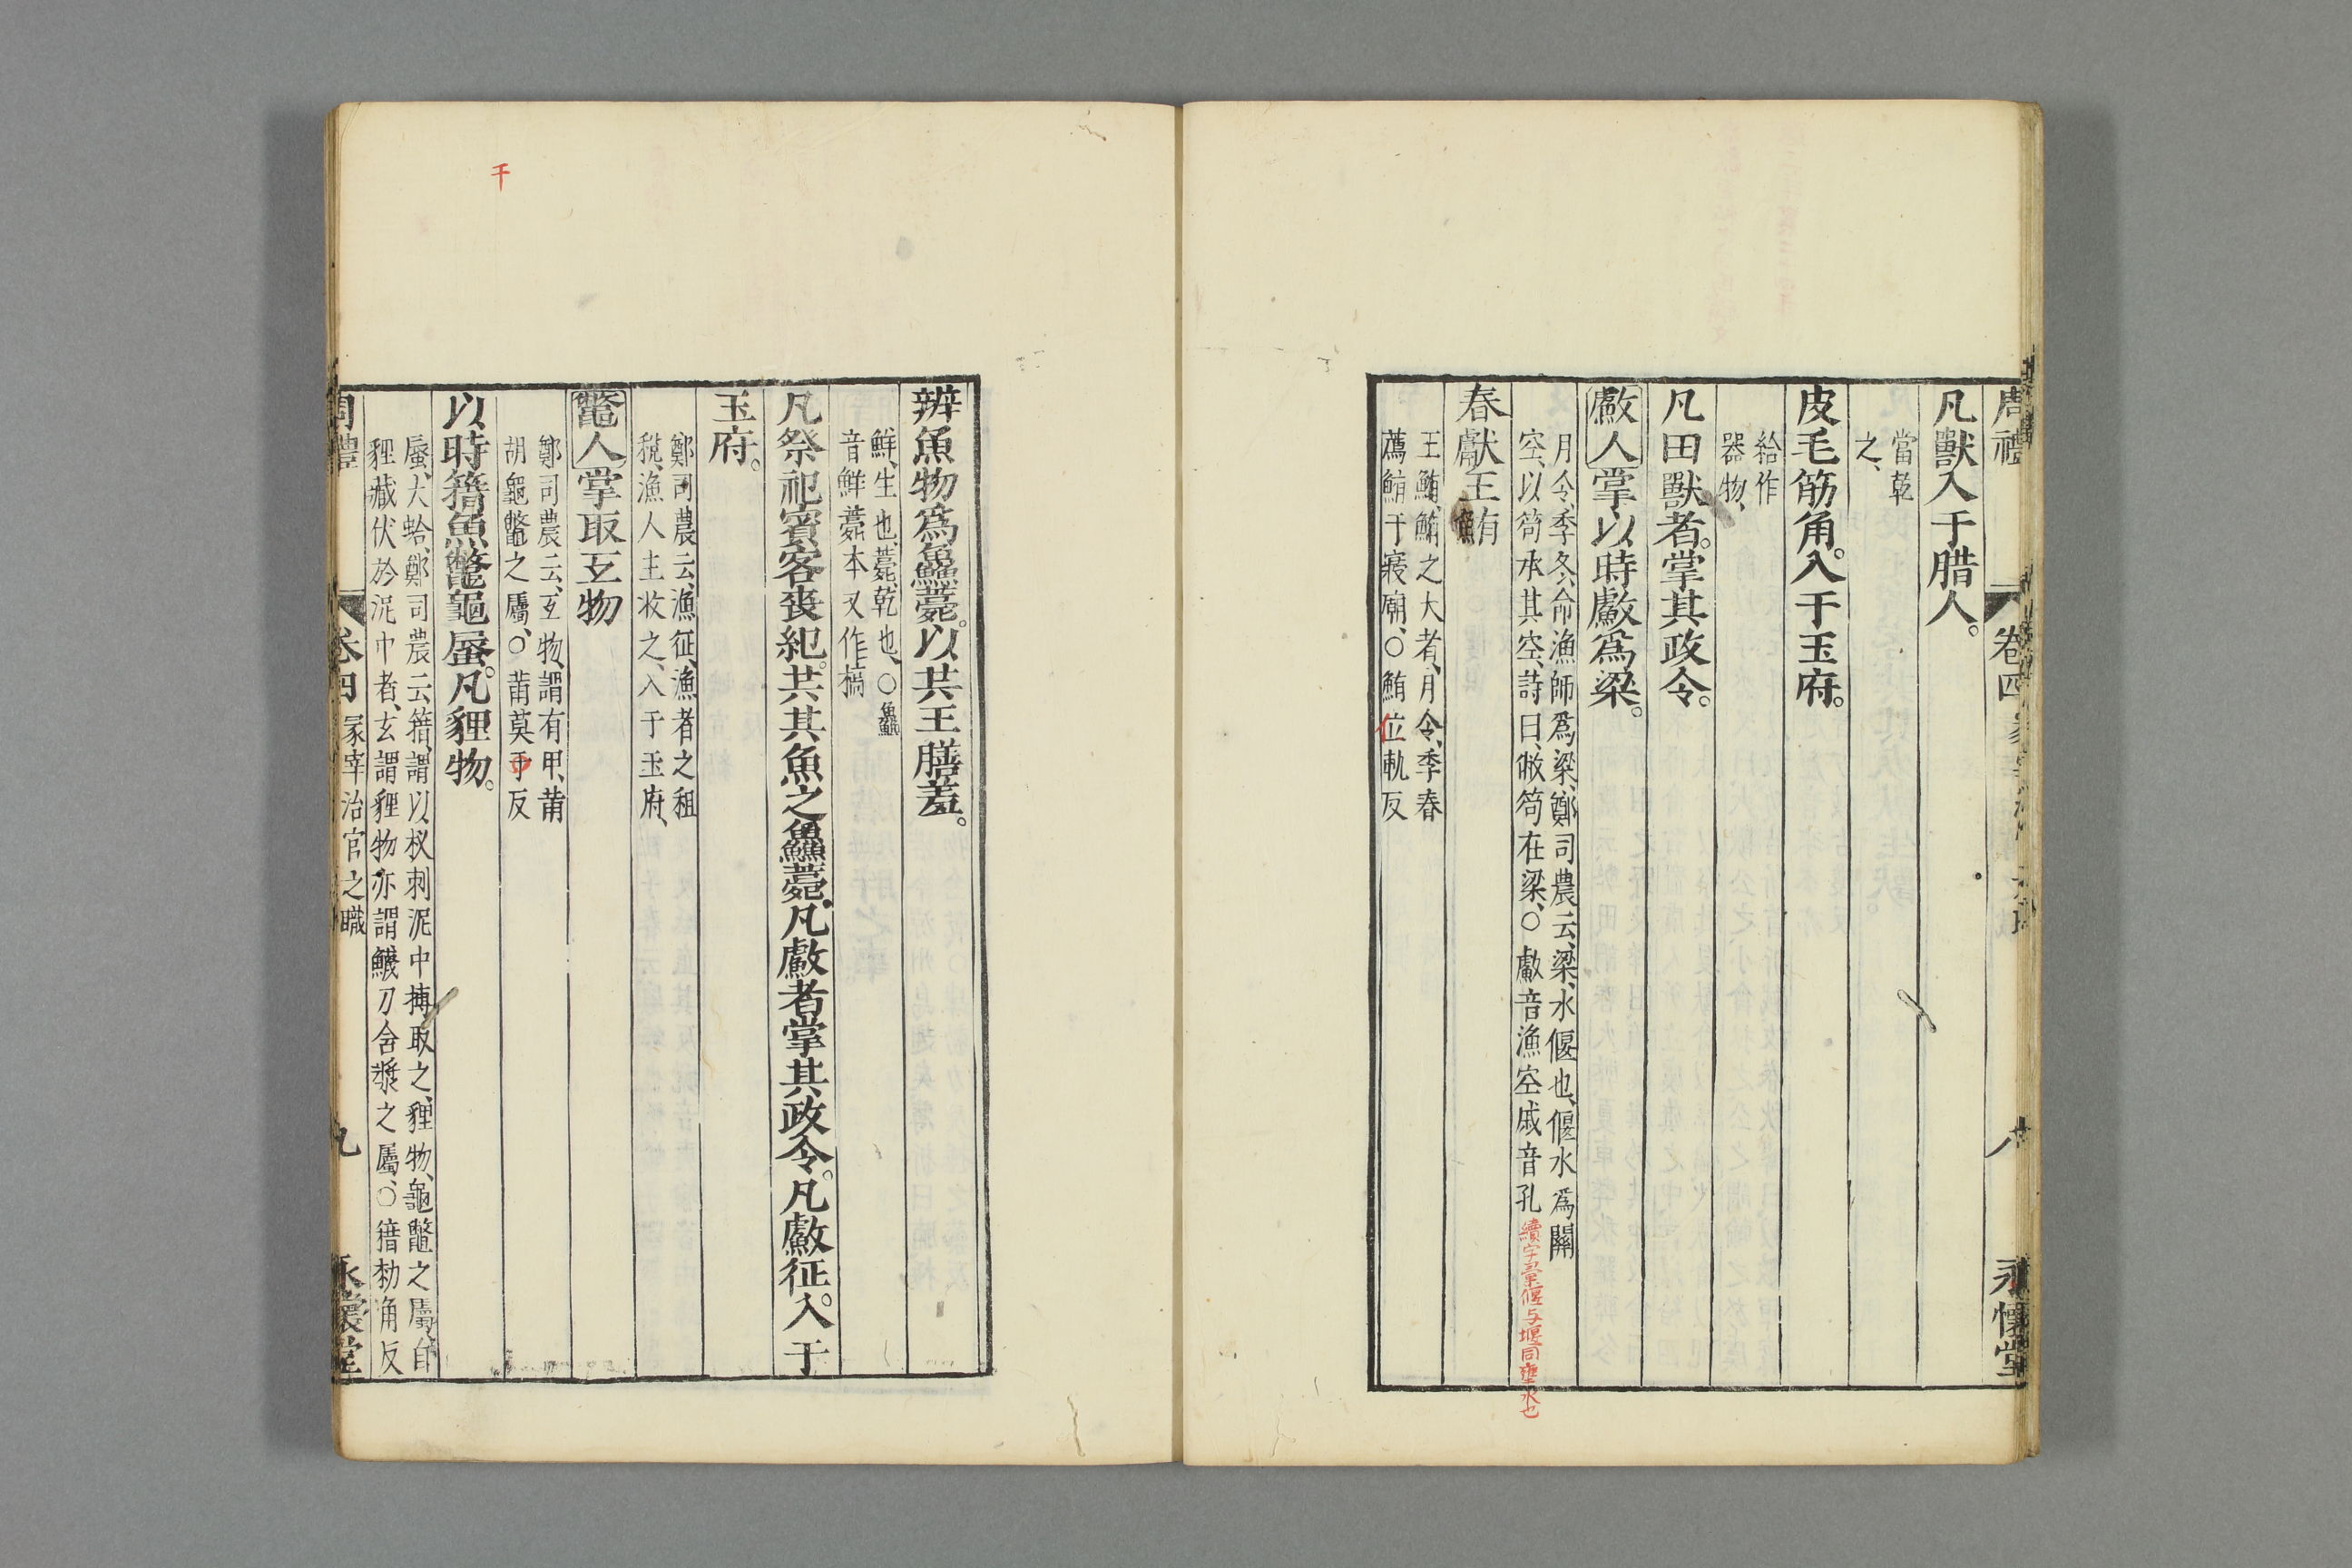 周禮 卷四 八 永懷堂
凡獸入于腊人。
當乾
之、
皮毛筋角。入于玉府。
給作
器物、
凡田獸者。掌其政令。
䱷人掌以時䱷爲梁。
月令、季冬、命漁師爲梁、鄭司農云、梁、水偃也、偃水爲關
空、以笱承其空、詩曰、敝笱在梁、○䱷音漁空戚音孔
續字彙偃与堰同壅水也
春獻王鮪
王鮪、鮪之大者、月令、季春
薦鮪于寢廟、○鮪位軌反
辨魚物爲鱻薧。以共王膳羞。
鮮、生也、薧、乾也、○鱻
音鮮薧本又作槁
凡祭祀賓客喪紀。共其魚之鱻薧。凡䱷者掌其政令。凡䱷征。入于
玉府。
鄭司農云、漁征、漁者之租
稅、漁人主收之、入于玉府、
鼈人掌取互物
鄭司農云、互物、謂有甲、䓣
胡龜鼈之屬、○䓣莫于反
千
以時籍魚鼈龜蜃。凡貍物。
蜃、大蛤、鄭司農云、籍、謂以杈刺泥中搏取之、貍物、龜鼈之屬、自
貍藏伏於泥中者、玄謂貍物、亦謂鱴刀含漿之屬、○籍勑角反
周禮 卷四 冢宰治官之職 九 永懷堂